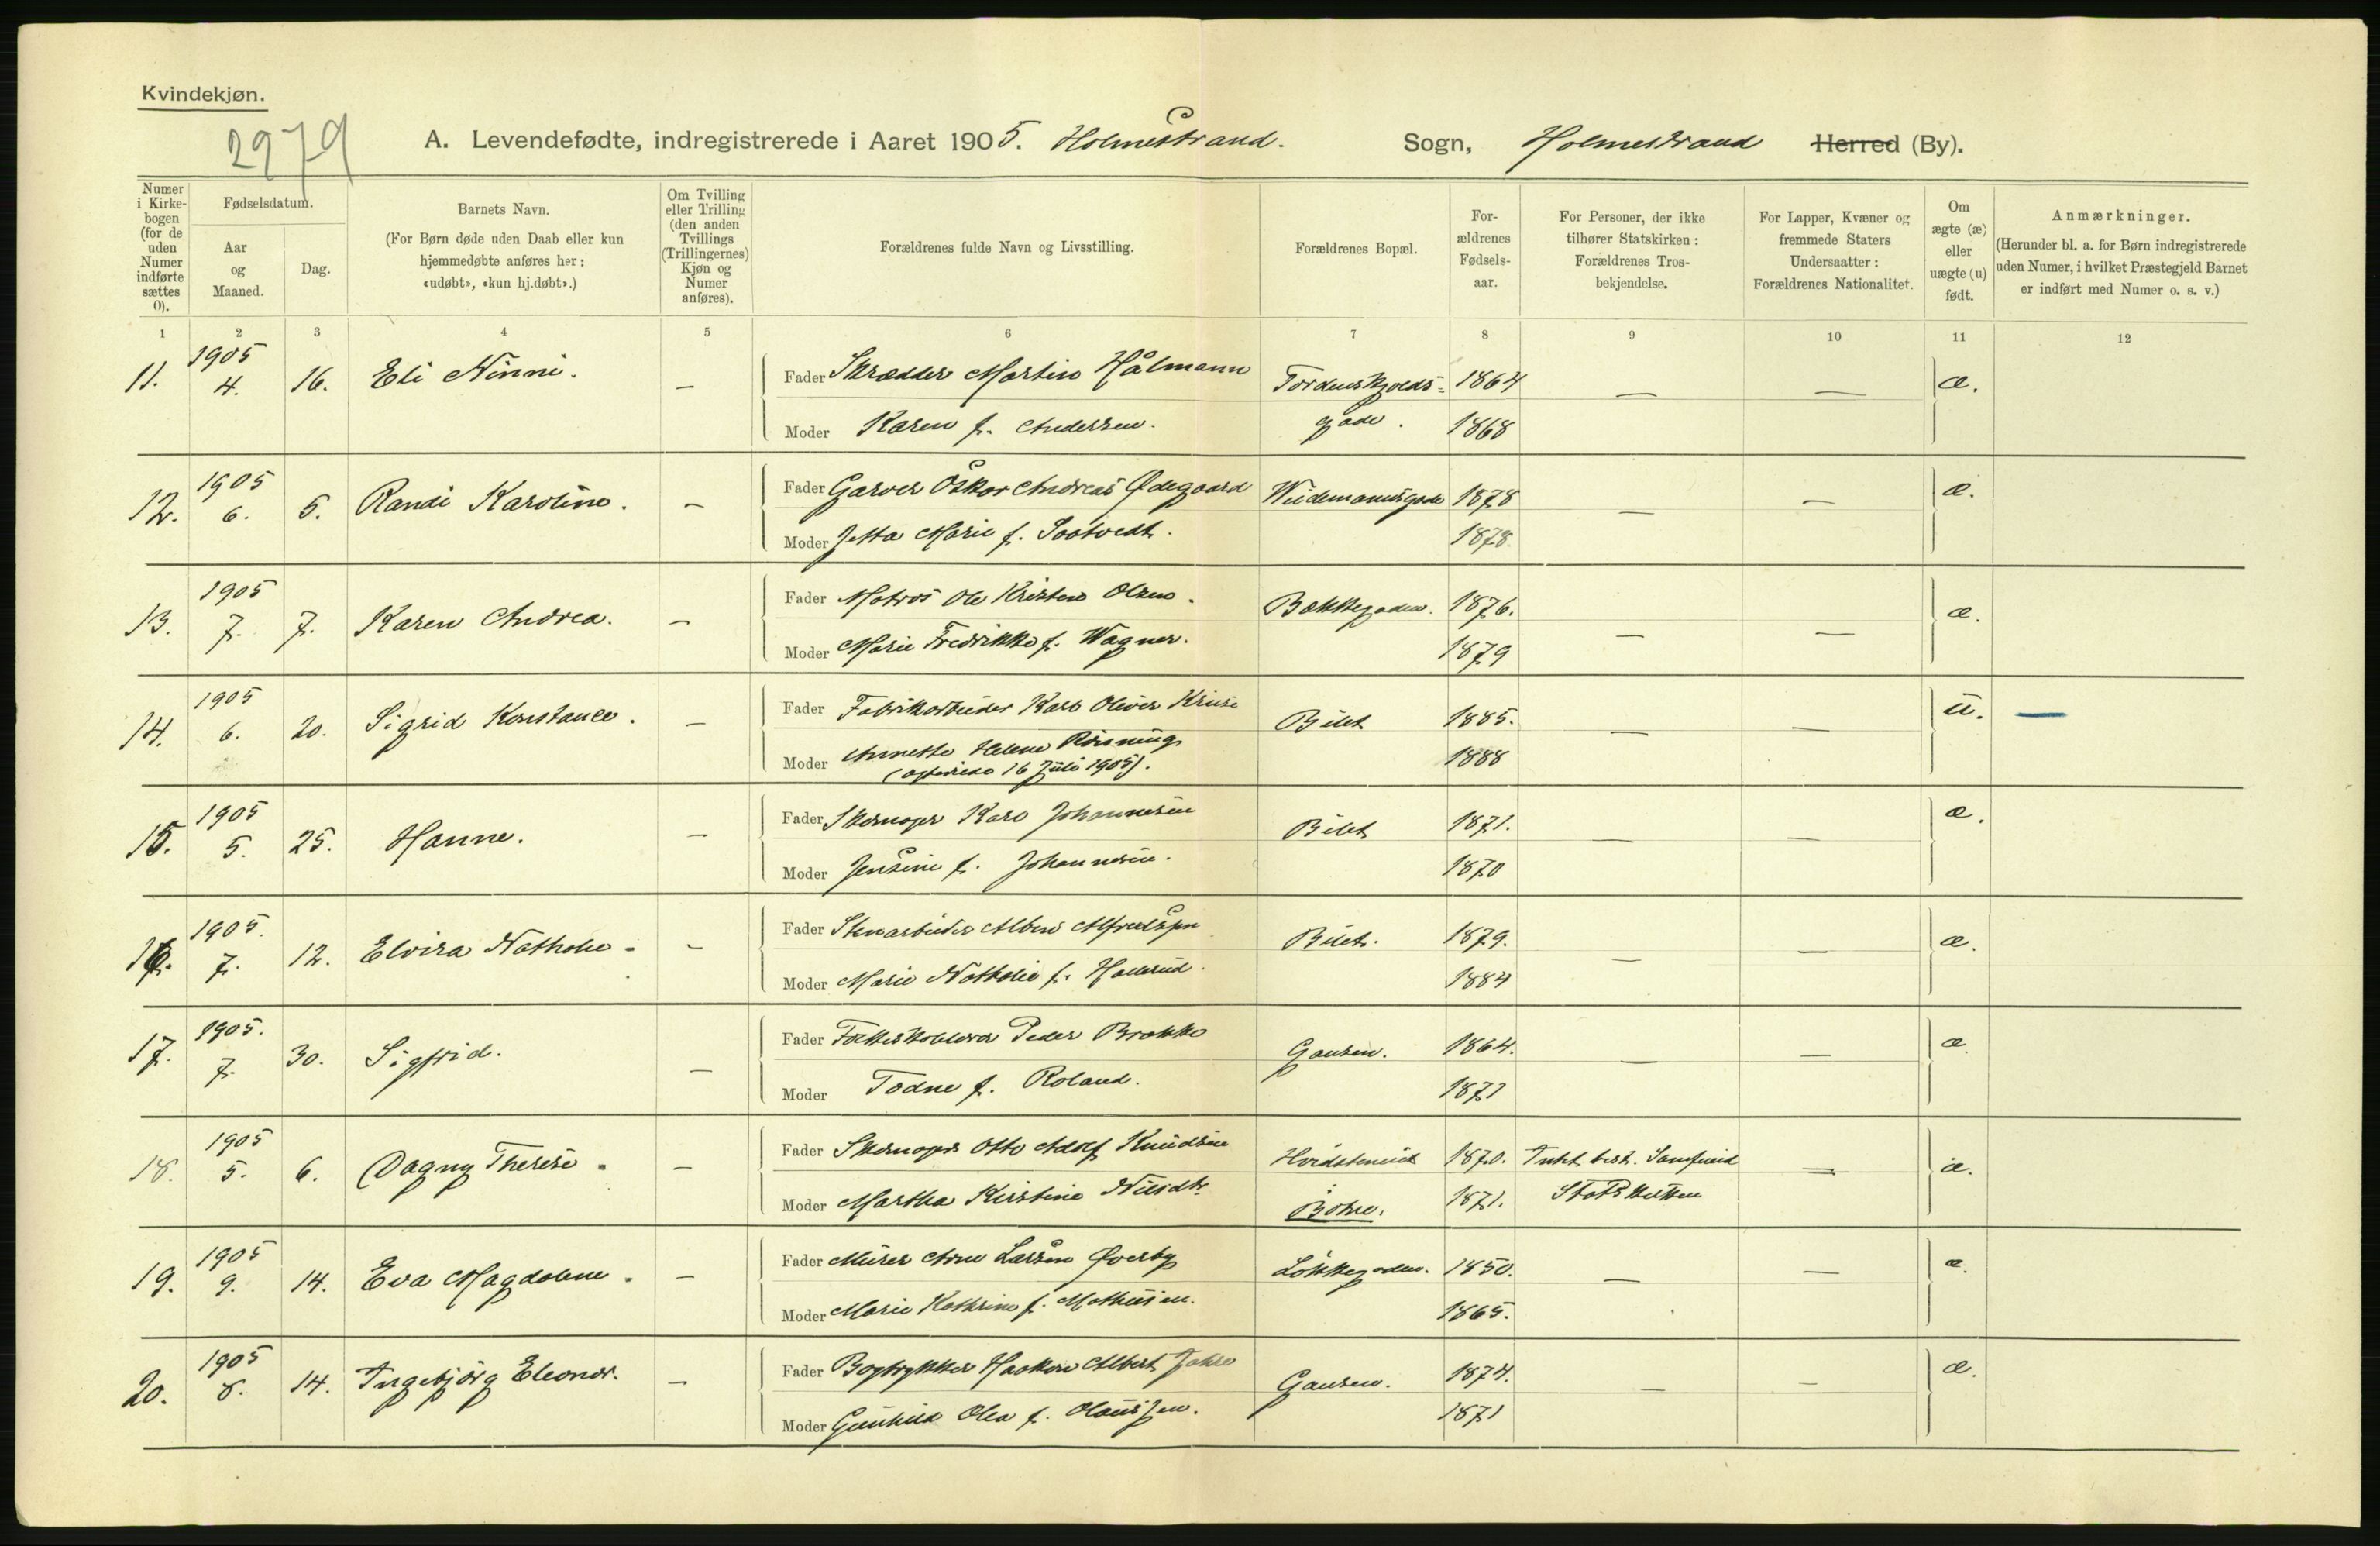 Kvindekjøn.
2979
A. Levendefødte, indregistrerede i Aaret 1905. Holmestrand. Sogn, Holmestrand Herred (By).
Numer i Kirkebogen (for de uden Numer indførte sættes 0).
Fødselsdatum.
Aar og Maaned.
Dag.
Barnets Navn.
(For Børn døde uden Daab eller kun hjemmedøbte anføres her: «udøbt», «kun hj.døbt».)
Om Tvilling eller Trilling (den anden Tvillings (Trillingernes) Kjøn og Numer anføres).
Forældrenes fulde Navn og Livsstilling.
Forældrenes Bopæl.
Forældrenes Fødselsaar.
For Personer, der ikke tilhører Statskirken: Forældrenes Trosbekjendelse.
For Lapper, Kvæner og fremmede Staters Undersaatter: Forældrenes Nationalitet.
Om ægte (æ) eller uægte (u) født.
Anmærkninger.
(Herunder bl. a. for Børn indregistrerede uden Numer, i hvilket Præstegjeld Barnet er indført med Numer o. s. v.)
1 2 3 4 5 6 7 8 9 10 11 12
11. 1905 4. 16. Eli Ninni. — Fader Skrædder Martin Hålmann Tordenskjolds- 1864 — — æ.
Moder Karen f. Andersen. gade. 1868
12. 1905 6. 5. Randi Karoline. — Fader Garver Oskar Andreas Ødegaard Weidemannsgade 1878 — — æ.
Moder Jetta Marie f. Sootvedt. 1878.
13. 1905 7. 7. Karen Andrea. — Fader Matros Ole Kristen Olsen. Bækkegaden. 1876. — — æ.
Moder Marie Fredrikke f. Wagner. 1879
14. 1905 6. 20. Sigrid Konstance. — Fader Fabrikarbeider Karl Oliver Kruse Bilet 1885. — — u. —
Moder Annette Helene Rönning 1888
(ægteviede 16 Juli 1905).
15. 1905 5. 25. Hanne. — Fader Skomager Karl Johannesen Bilet 1871. — — æ.
Moder Jensine f. Johannesen. 1870
16. 1905. 7. 12. Elvira Nathalie. — Fader Stenarbeider Albin Alfredsson Bilet. 1879. — — æ.
Moder Marie Nathalie f. Hallerud. 1884
17. 1905. 7. 30. Sigfrid. — Fader Folkeskolelærer Peder Brokke Gausen. 1864. — — æ.
Moder Todne f. Roland. 1871
18. 1905 5. 6. Dagny Therese. — Fader Skomager Otto Adolf Knudsen Hvidstenius 1870. Intet best. Samfund — æ.
Moder Martha Kirstine Nilsdtr. 1871. Statskirken
19. 1905 9. 14. Eva Magdalene. — Fader Murer Arne Larsen Øverby Løkkegaden. 1850. — — æ.
Moder Marie Kathrine f. Mathisen. 1865.
20. 1905 8. 14. Ingebjörg Eleonor. — Fader Bogtrykker Haakon Albert Jahre Gausen. 1874. — — æ.
Moder Gunhild Olea f. Olaussen. 1871